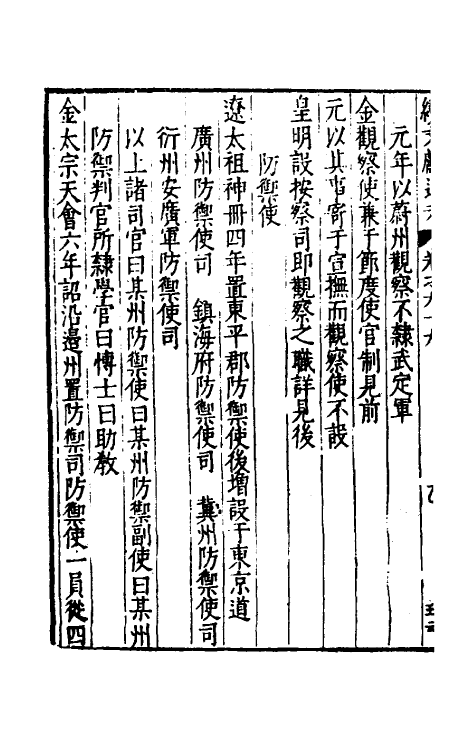 元年以蔚州觀察不隸武定軍
金觀察使兼于節度使官制見前
元以其事寄于宣撫而觀察使不設
皇明設按察司即觀察之職詳見後
防禦使
遼太祖神冊四年置東平郡防禦使後增設于東京道
廣州防禦使司 鎮海府防禦使司 冀州防禦使司
衍州安廣軍防禦使司
以上諸司官曰某州防禦使曰某州防禦副使曰某州
防禦判官所隸學官曰博士曰助教
金太宗天會六年詔沿邊州置防禦司防禦使一員從四